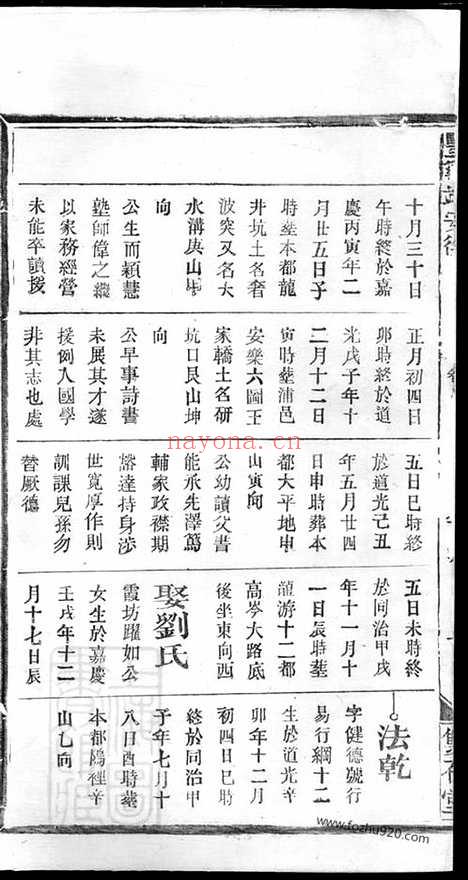 十月三十日
午時終於嘉
慶丙寅年二
月廿五日子
時塟本都龍
井坑土名耆
波突又名大
水溝庚山甲
向
公生而穎慧
塾師偉之繼
以家務經營
未能卒讀援
正月初四日
卯時終於道
光戊子年十
二月十二日
寅時塟蒲邑
安樂六圖王
家轎土名研
坑口艮山坤
向
公早事詩書
未展其才遂
援例入國學
非其志也處
五日巳時終
於道光己丑
年五月廿四
日申時葬本
都大平地申
山寅向
公幼讀父書
能承先澤篤
輔家政襟期
豁達持身涉
世寬厚作則
訓課兒孫勿
替厥德
五日未時終
於同治甲戌
年十一月十
一日辰時塟
龍游十二都
高岑大路底
後坐東向西
娶劉氏
霞坊躍如公
女生於嘉慶
壬戌年十二
月十七日辰
法乾
字健德號行
易行綱十二
生於道光辛
卯年十二月
初四日巳時
終於同治甲
子年七月十
八日酉時塟
本都隖裡辛
山乙向
nayona.cn
www.fozhu920.com